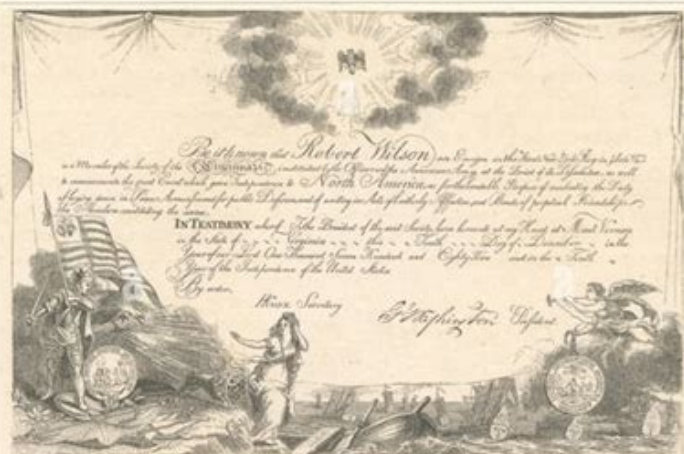 Be it known that Robert Wilson an Ensign in the First New York Reg
is a Member of the Society of the Cincinnati; instituted by the Officers of the American Army, at the Period of its Dissolution, as well
to commemorate the great Event which gave Independence to North America, as for the laudable Purpose of inculcating the Duty
of laying down in Peace Arms assumed for public Defence, and of uniting in Acts of brotherly Affection, and Bonds of perpetual Friendship
the Members constituting the same.
IN TESTIMONY whereof I, the President of the said Society, have hereunto set my Hand at Mount Vernon
in the State of Virginia this Tenth Day of December in the
Year of our Lord One Thousand Seven Hundred and Eighty Five and in the Tenth
Year of the Independence of the United States.
By order,
Knox Secretary
G Washington President